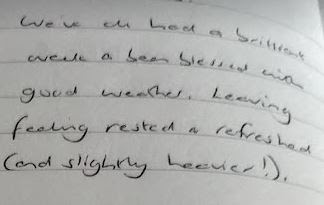 We've all had a brilliant
week & been blessed with
good weather. Leaving
feeling rested & refreshed
(and slightly heavier!).